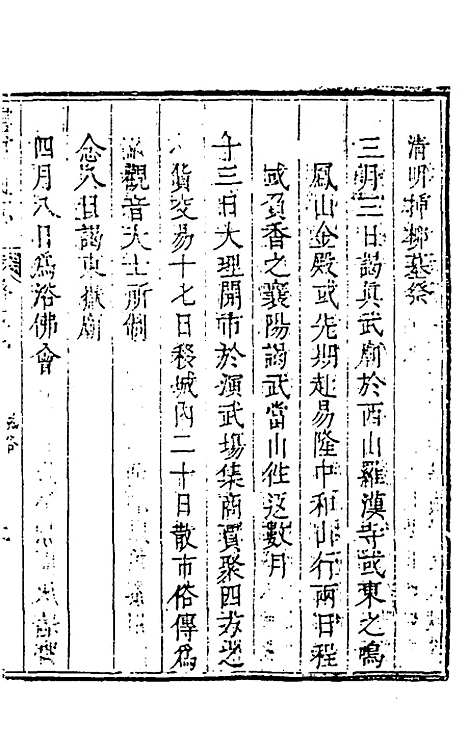 清明插柳墓祭
三月三日謁眞武廟於西山羅漢寺或東之鳴
鳳山金殿或先期赴易隆中和山行兩日程
或負香之襄陽謁武當山往返數月
十三日大理開市於演武場集商賈聚四方之
貨交易十七日移城內二十日散市俗傳爲
觀音大士所制
念八日謁東嶽廟
四月八日爲浴佛會